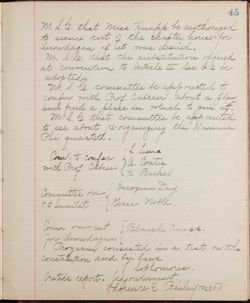 45
M.S.C. that Miss Fuchs be authorized
to secure cut of the chapter house for
Arrowdagan if let was desired.
M.S.C. that the substitution offered
at convention to Article III Sec. 2 be
adopted.
M.S.C. committee be appointed to
confer with Prof. about a play
and find a place in which to give it.
M.S.C. that committee be appointed
to see about reorganizing the Gamma
Phi quartett.
Com. to confer
with Prof.
L.
A. Coats
K. Barker
Committee on
Quartet
Imogene Day
Grace Noble.
Com. on cut
for Arrowdagan
Blanche
Program consisted in a test on the
constitution and by laws
Sophomores.
Critics report. Adjournment.
Florence E. Bailey